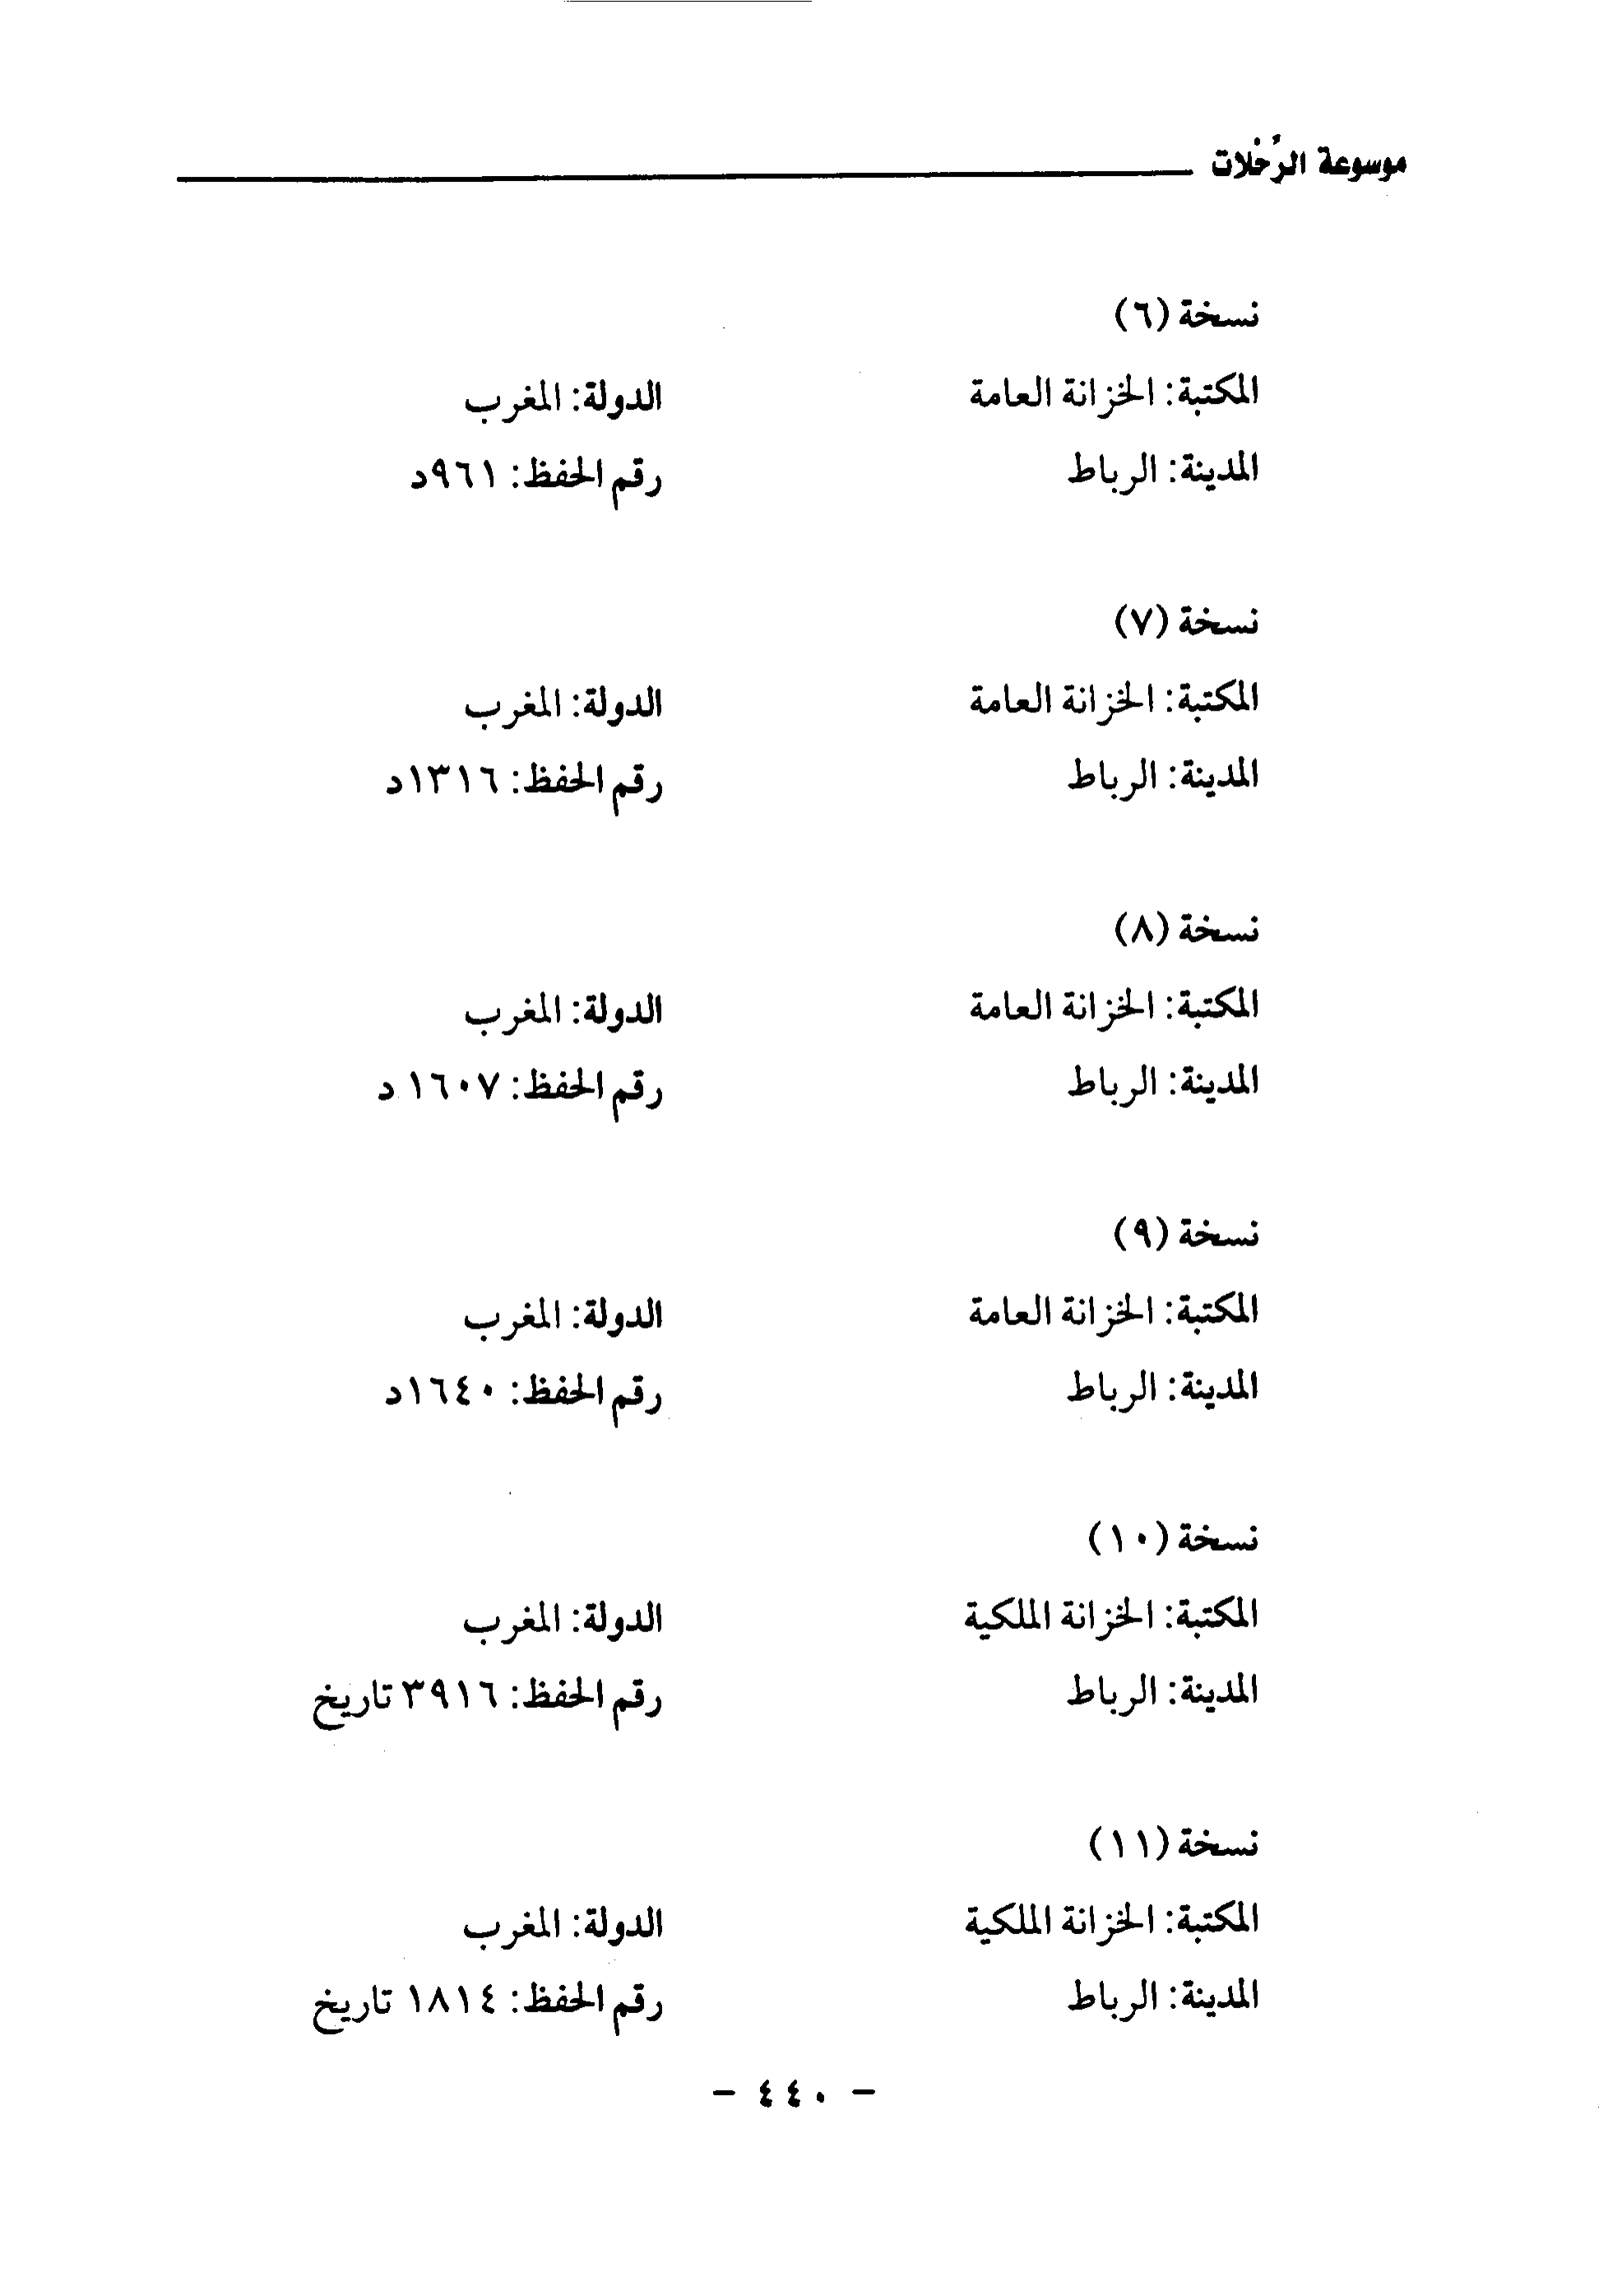 موسوعة الرِّحْلات
نسخة (٦)
المكتبة: الخزانة العامة الدولة: المغرب
المدينة: الرباط رقم الحفظ: ٩٦١د
نسخة (٧)
المكتبة: الخزانة العامة الدولة: المغرب
المدينة: الرباط رقم الحفظ: ١٣١٦د
نسخة (٨)
المكتبة: الخزانة العامة الدولة: المغرب
المدينة: الرباط رقم الحفظ: ١٦٠٧ د
نسخة (٩)
المكتبة: الخزانة العامة الدولة: المغرب
المدينة: الرباط رقم الحفظ: ١٦٤٠د
نسخة (١٠)
المكتبة: الخزانة الملكية الدولة: المغرب
المدينة: الرباط رقم الحفظ: ٣٩١٦ تاريخ
نسخة (١١)
المكتبة: الخزانة الملكية الدولة: المغرب
المدينة: الرباط رقم الحفظ: ١٨١٤ تاريخ
- ٤٤٠ -